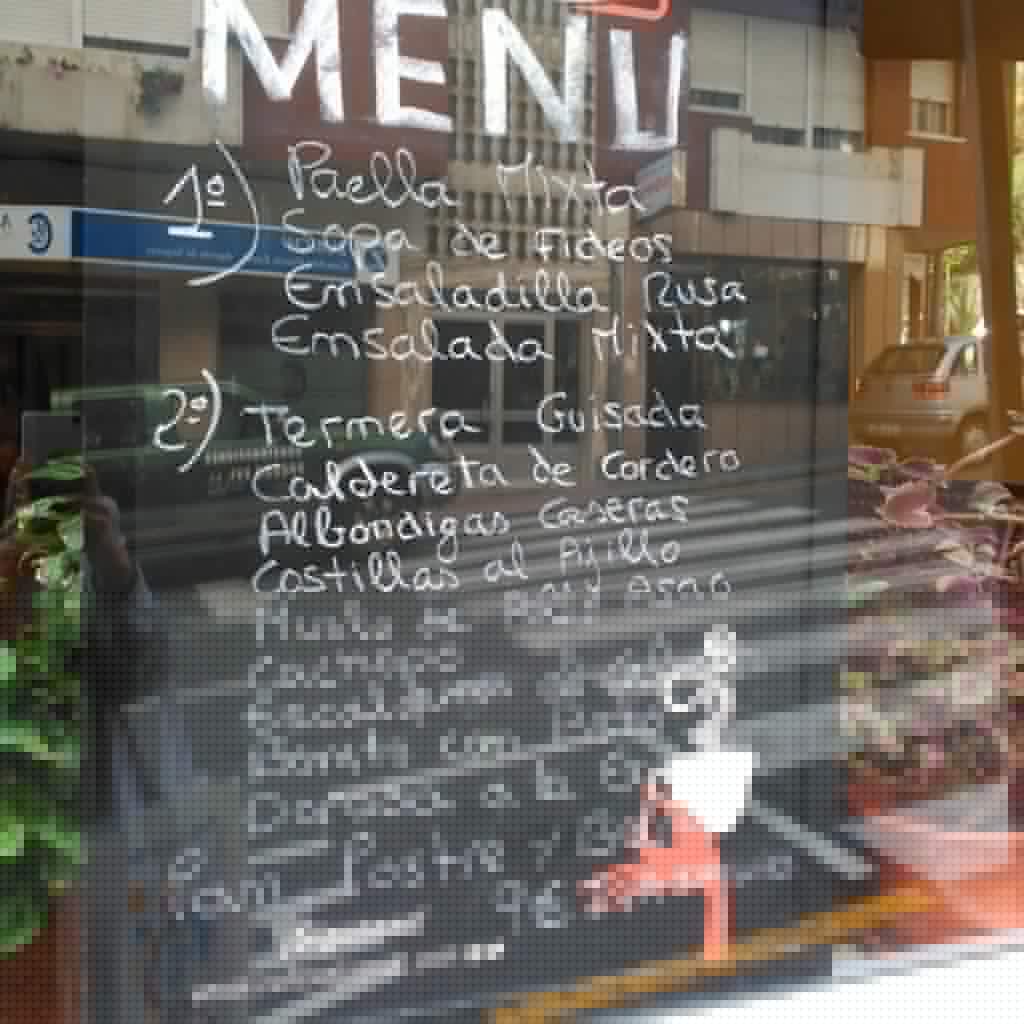 MENU
1º) Paella Mixta
Sopa de Fideos
Emsaladilla Rusa
Emsalada Mixta
2º) Termera Guisada
Caldereta de Cordero
Albondigas Caseras
Costillas al Ajillo
Muslo de
Cachopo
Bonito con
Dorada a la
Pan Postre y
9€